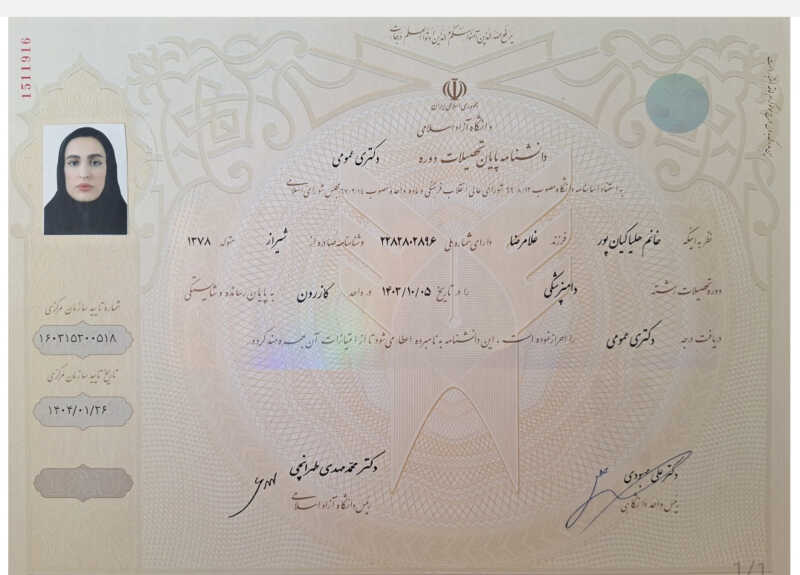 یرفع الله الذین آمنوا منکم والذین اوتوا العلم درجات
1511916
جمهوری اسلامی ایران
دانشگاه آزاد اسلامی
دانشنامه پایان تحصیلات دوره دکتری عمومی
به استناد اساسنامه دانشگاه مصوب ۶۶/۸/۱۲ شورای عالی انقلاب فرهنگی و ماده واحده مصوب ۶۷/۲/۱۴ مجلس شورای اسلامی
نظر به اینکه خانم هلیا کیان پور فرزند غلامرضا دارای شماره ملی ۲۲۸۲۸۰۲۸۹۶ و شناسنامه صادره از شیراز متولد ۱۳۷۸
دوره تحصیلات رشته دامپزشکی را در تاریخ ۱۴۰۳/۱۰/۰۵ در واحد کازرون به پایان رسانده و شایستگی
دریافت درجه دکتری عمومی را احراز نموده است ، این دانشنامه به نامبرده اعطا می شود تا از امتیازات آن بهره مند گردد.
شماره تایید سازمان مرکزی
۱۶۰۳۱۵۳۰۰۵۱۸
تاریخ تایید سازمان مرکزی
۱۴۰۴/۰۱/۲۶
دکتر علی
رییس واحد دانشگاهی
دکتر محمد مهدی طهرانچی
رییس دانشگاه آزاد اسلامی
1/1